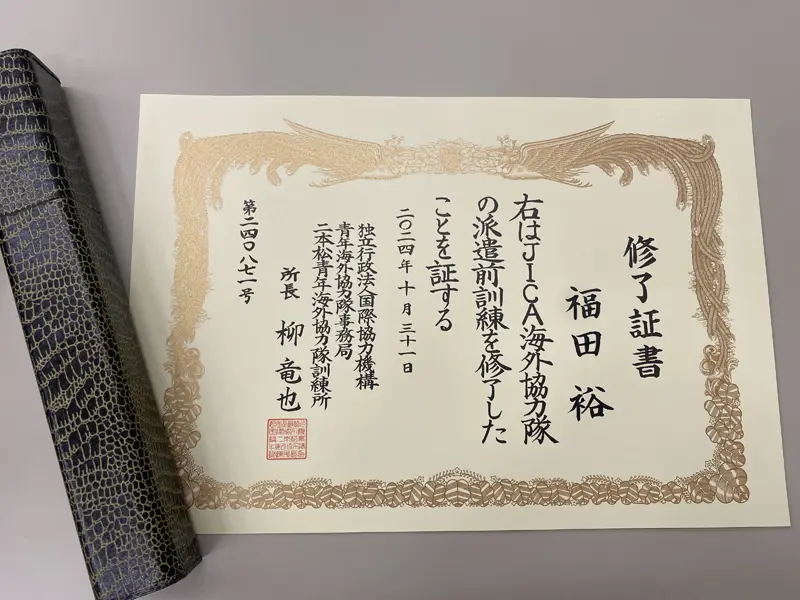 修了証書
福田 裕
右はJICA海外協力隊
の派遣前訓練を修了した
ことを証する
二〇二四年 十月 三十一日
独立行政法人国際協力機構
青年海外協力隊事務局
二本松青年海外協力隊訓練所
所長 柳 竜也
第二四〇八七一号